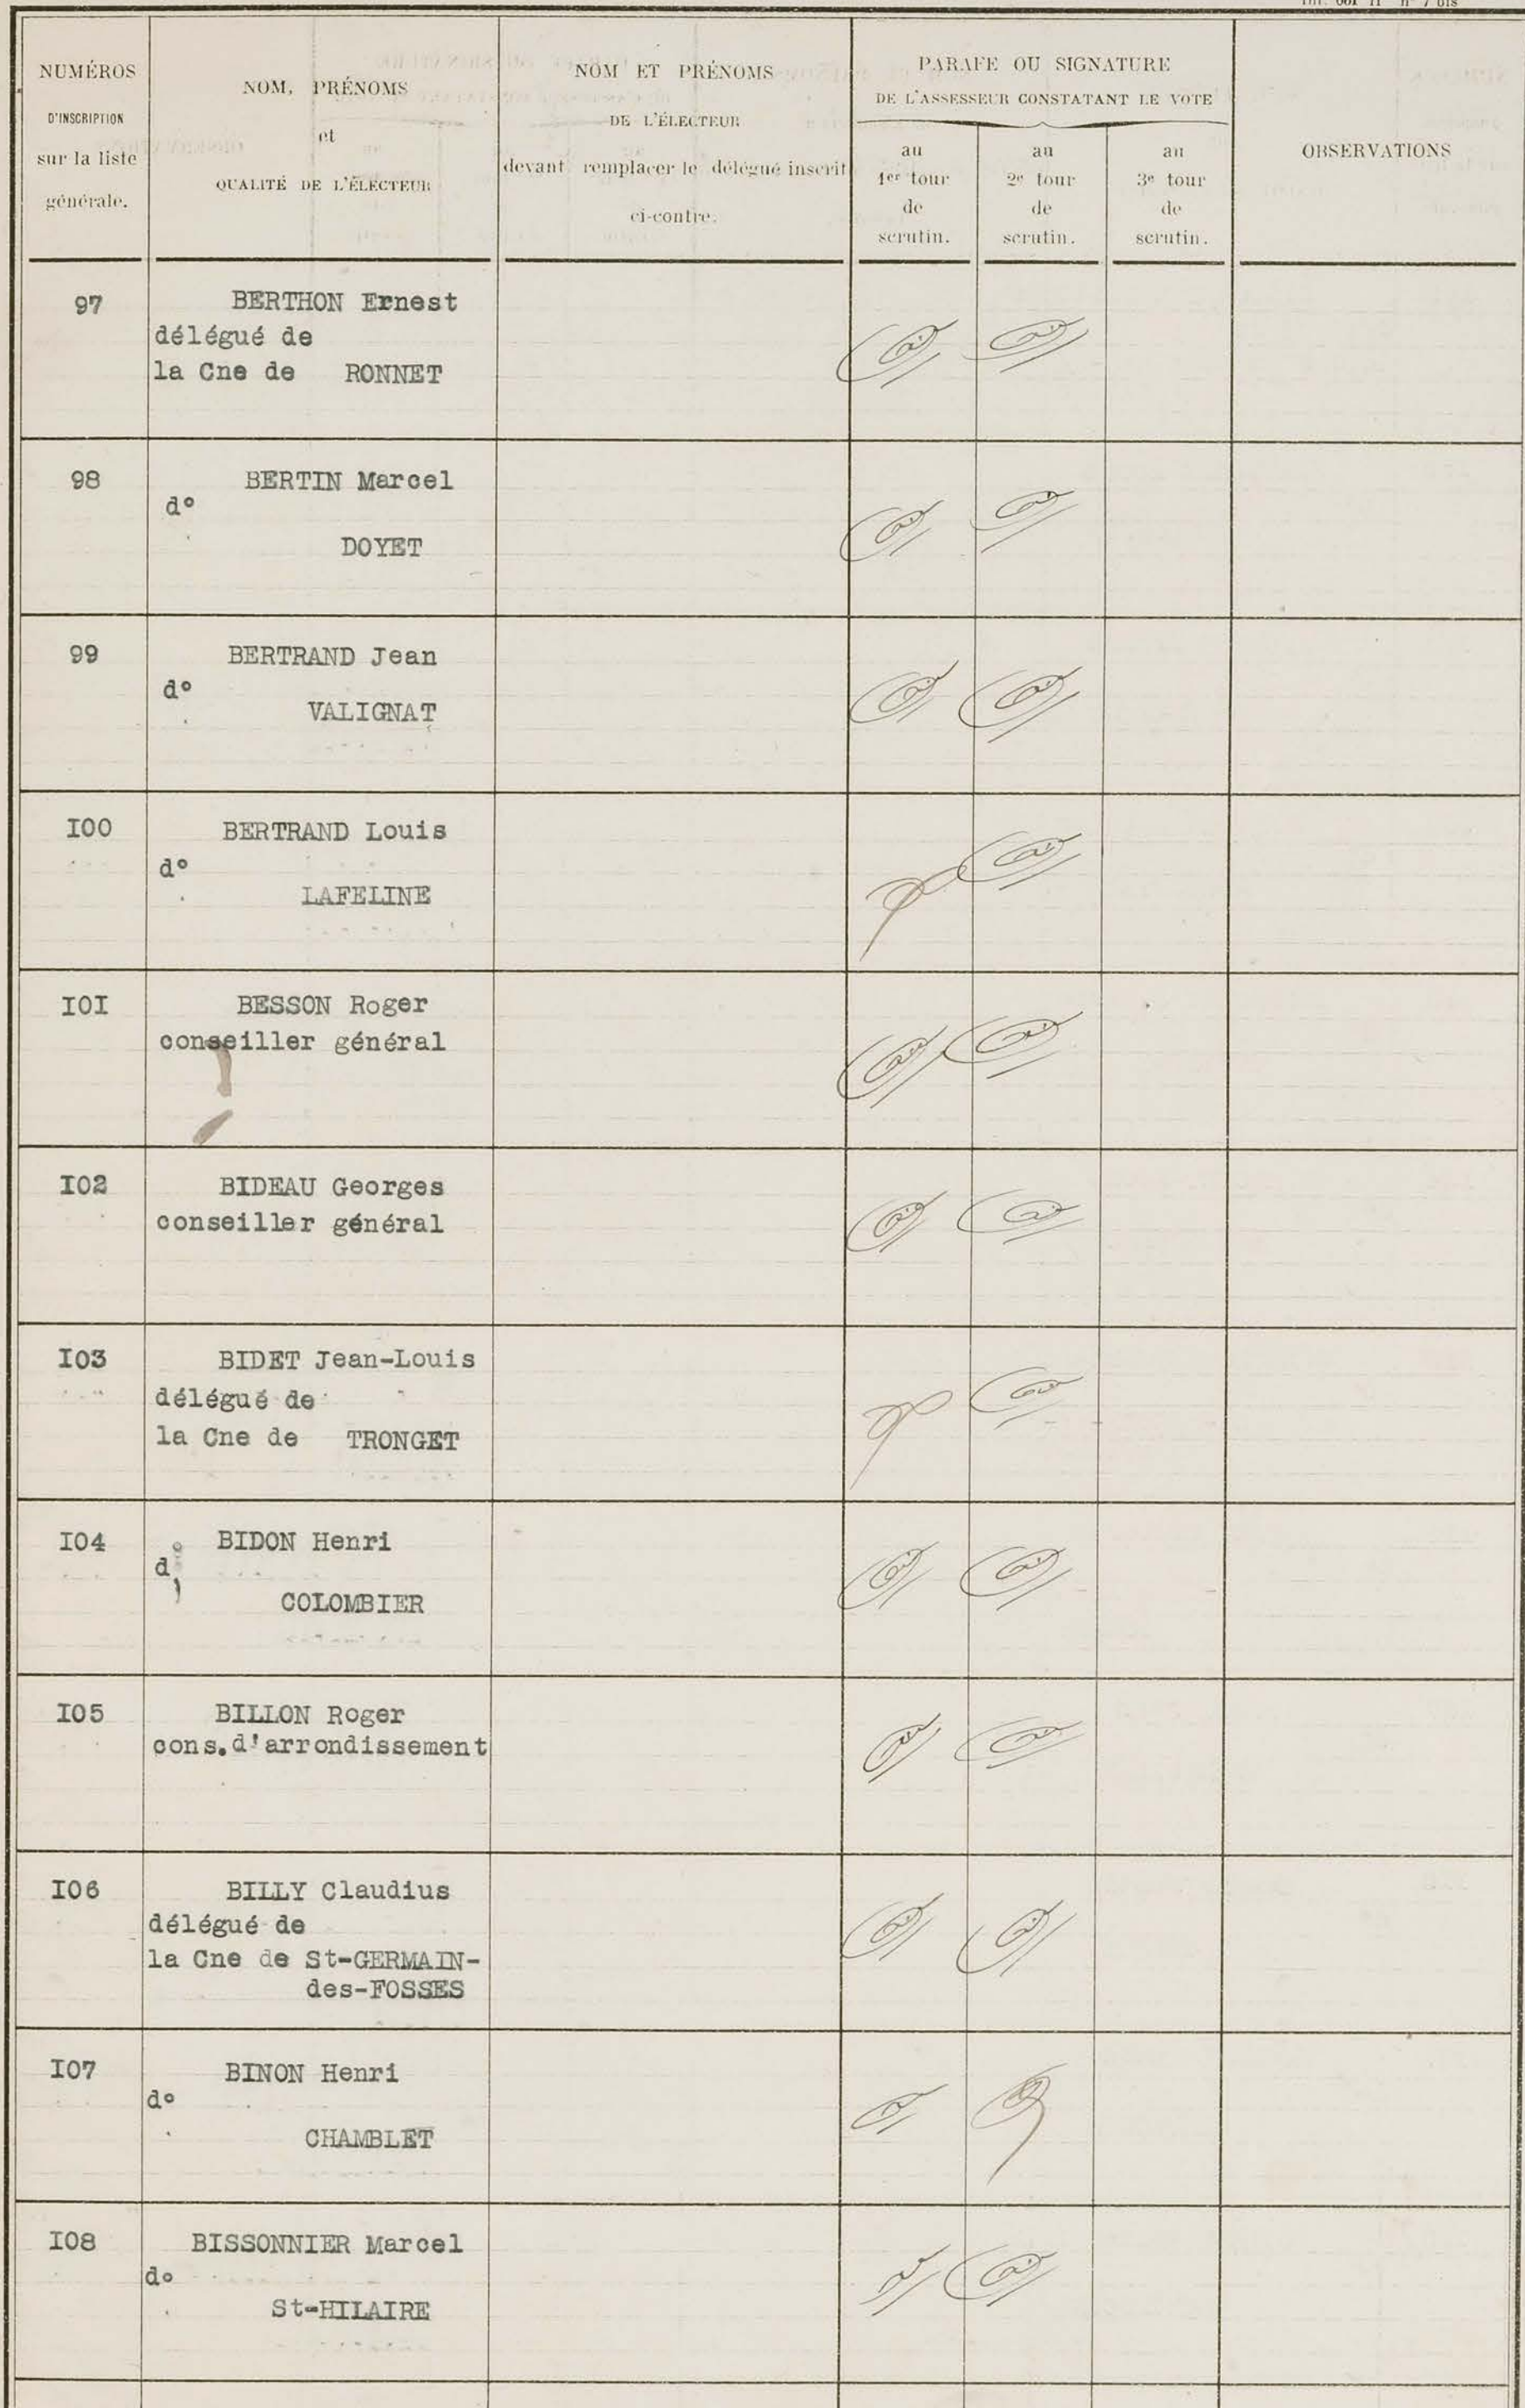 NUMÉROS
D'INSCRIPTION
sur la liste
générale.
NOM, PRÉNOMS
et
QUALITÉ DE L'ÉLECTEUR
NOM ET PRÉNOMS
DE L'ÉLECTEUR
devant remplacer le délégué inscrit
ci-contre.
PARAFE OU SIGNATURE
DE L'ASSESSEUR CONSTATANT LE VOTE
au
1er tour
de
scrutin.
au
2e tour
de
scrutin.
au
3e tour
de
scrutin.
OBSERVATIONS
97
BERTHON Ernest
délégué de
la Cne de RONNET
98
BERTIN Marcel
d°
DOYET
99
BERTRAND Jean
d°
VALIGNAT
I00
BERTRAND Louis
d°
LAFELINE
I0I
BESSON Roger
conseiller général
I02
BIDEAU Georges
conseiller général
I03
BIDET Jean-Louis
délégué de
la Cne de TRONGET
I04
BIDON Henri
d°
COLOMBIER
I05
BILLON Roger
cons.d'arrondissement
I06
BILLY Claudius
délégué de
la Cne de St-GERMAIN-
des-FOSSES
I07
BINON Henri
d°
CHAMBLET
I08
BISSONNIER Marcel
do
St-HILAIRE